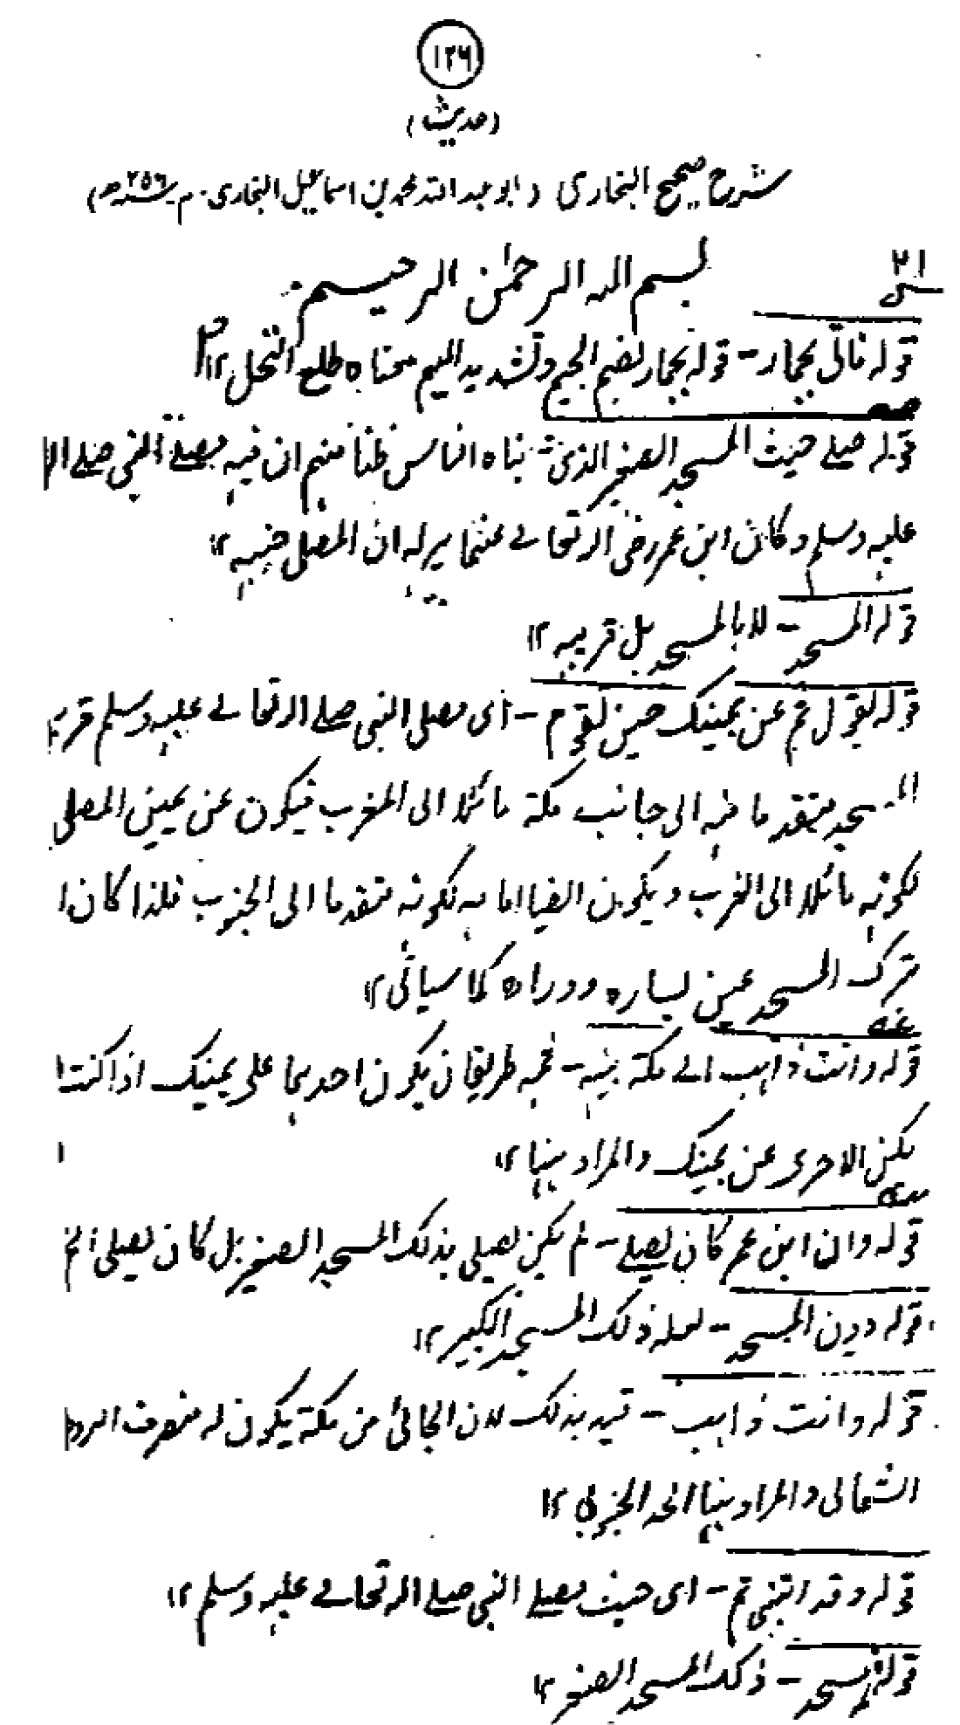 ١٢٦
(حدیث)
شرح صحیح البخاری (ابو عبد اللہ محمد بن اسماعیل البخاری۔ م ۲۵۶ھ)
۲۱ بسم اللہ الرحمٰن الرحیم
قولہ فاتی بجمار۔ قولہ بجمار بضم الجیم وتشدید المیم معناہ طلع النخل ۱۲
قولہ صلے حیث المسجد الصغیر الذی۔ بناہ الناس ظنا منہم ان فیہ مصلے النبی صلے الہ
علیہ وسلم وکان ابن عمر رضی الہ تعالے عنہما یرلہ ان المصلی جنبہ ۱۲
قولہ المسجد۔ لا بالمسجد بل قریبہ ۱۲
قولہ یقول ثم عن یمینک حین تقوم۔ ای مصلی النبی صلے الہ تعالے علیہ وسلم
المسجد متقدما منہ الی جانب مکۃ مائلا الی المغرب فیکون عن یمین المصلی
لکونہ مائلا الی الغرب ویکون ایضا امامہ لکونہ متقدما الی الجنوب فلذا کان
ترک المسجد عن یسارہ ووراہ کما سیأتی ۱۲
قولہ وانت ذاہب الے مکۃ بینہ۔ طریقان یکون احدہما علی یمینک اذا کنت
یکن الاخری عن یمینک والمراد ہنہا ۱۲
قولہ وان ابن عمر کان یصلے۔ لم یکن یصلی بذلک المسجد الصغیر بل کان یصلی الخ
قولہ دون المسجد۔ لعلہ ذلک المسجد الکبیر ۱۲
قولہ وانت ذاہب۔ قید بذلک لان الجائی من مکۃ یکون لہ منصرف الروحا
الشمالی والمراد ہنہا الحد الجنوبی ۱۲
قولہ وقد ابتنی ثم۔ ای حیث مصلے النبی صلے الہ تعالے علیہ وسلم ۱۲
قولہ مسجد۔ ذلک المسجد الصغیر ۱۲